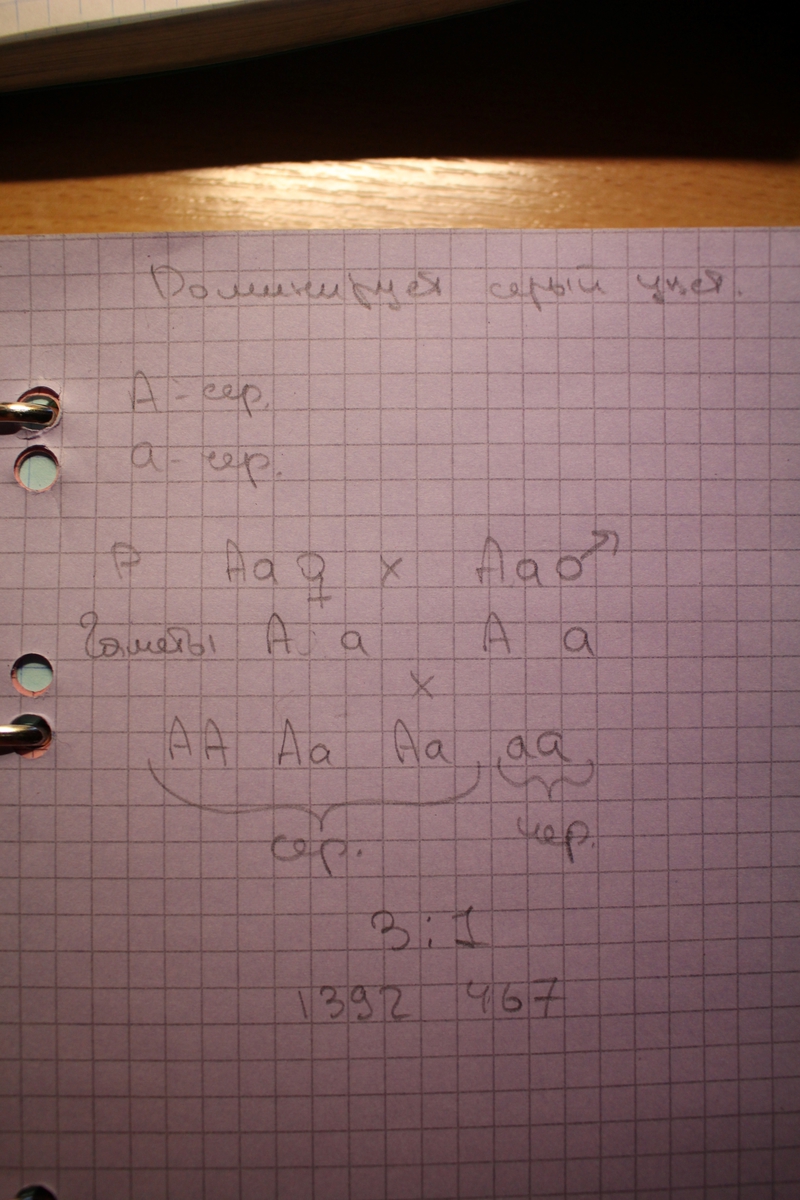 Доминирует серый цвет.
A - сер.
a - чер.
P Aa ♀ x Aa ♂
Гаметы A a A a
x
AA Aa Aa aa
сер. чер.
3:1
1392 467